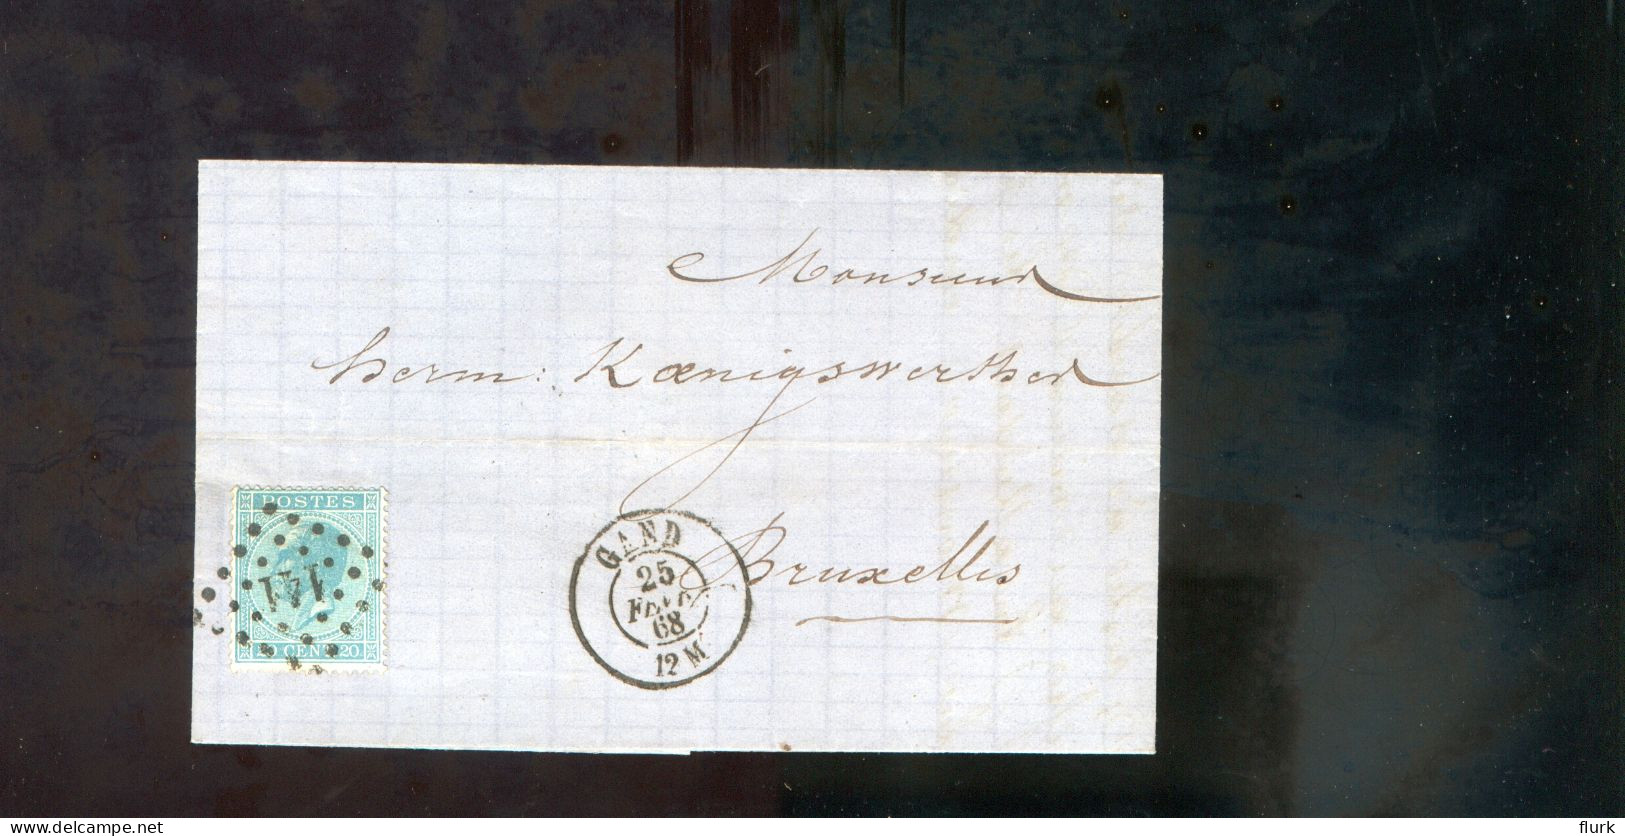 Monsieur
Herm: Kœnigswerther
Bruxelles
GAND
25
FEVR
68
12 M
POSTES
141
20 CENT. 20
delcampe.net
flurk